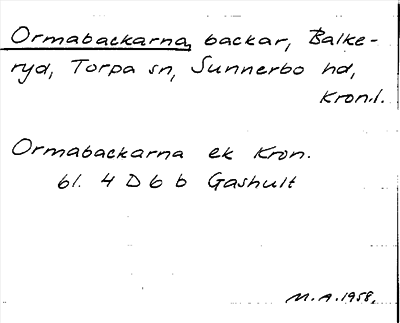 Ormabackarna, backar, Balke-
ryd, Torpa sn, Sunnerbo hd,
Kron.l.
Ormabackarna ek Kron.
bl. 4 D 6 b Gashult
M.A.1958.